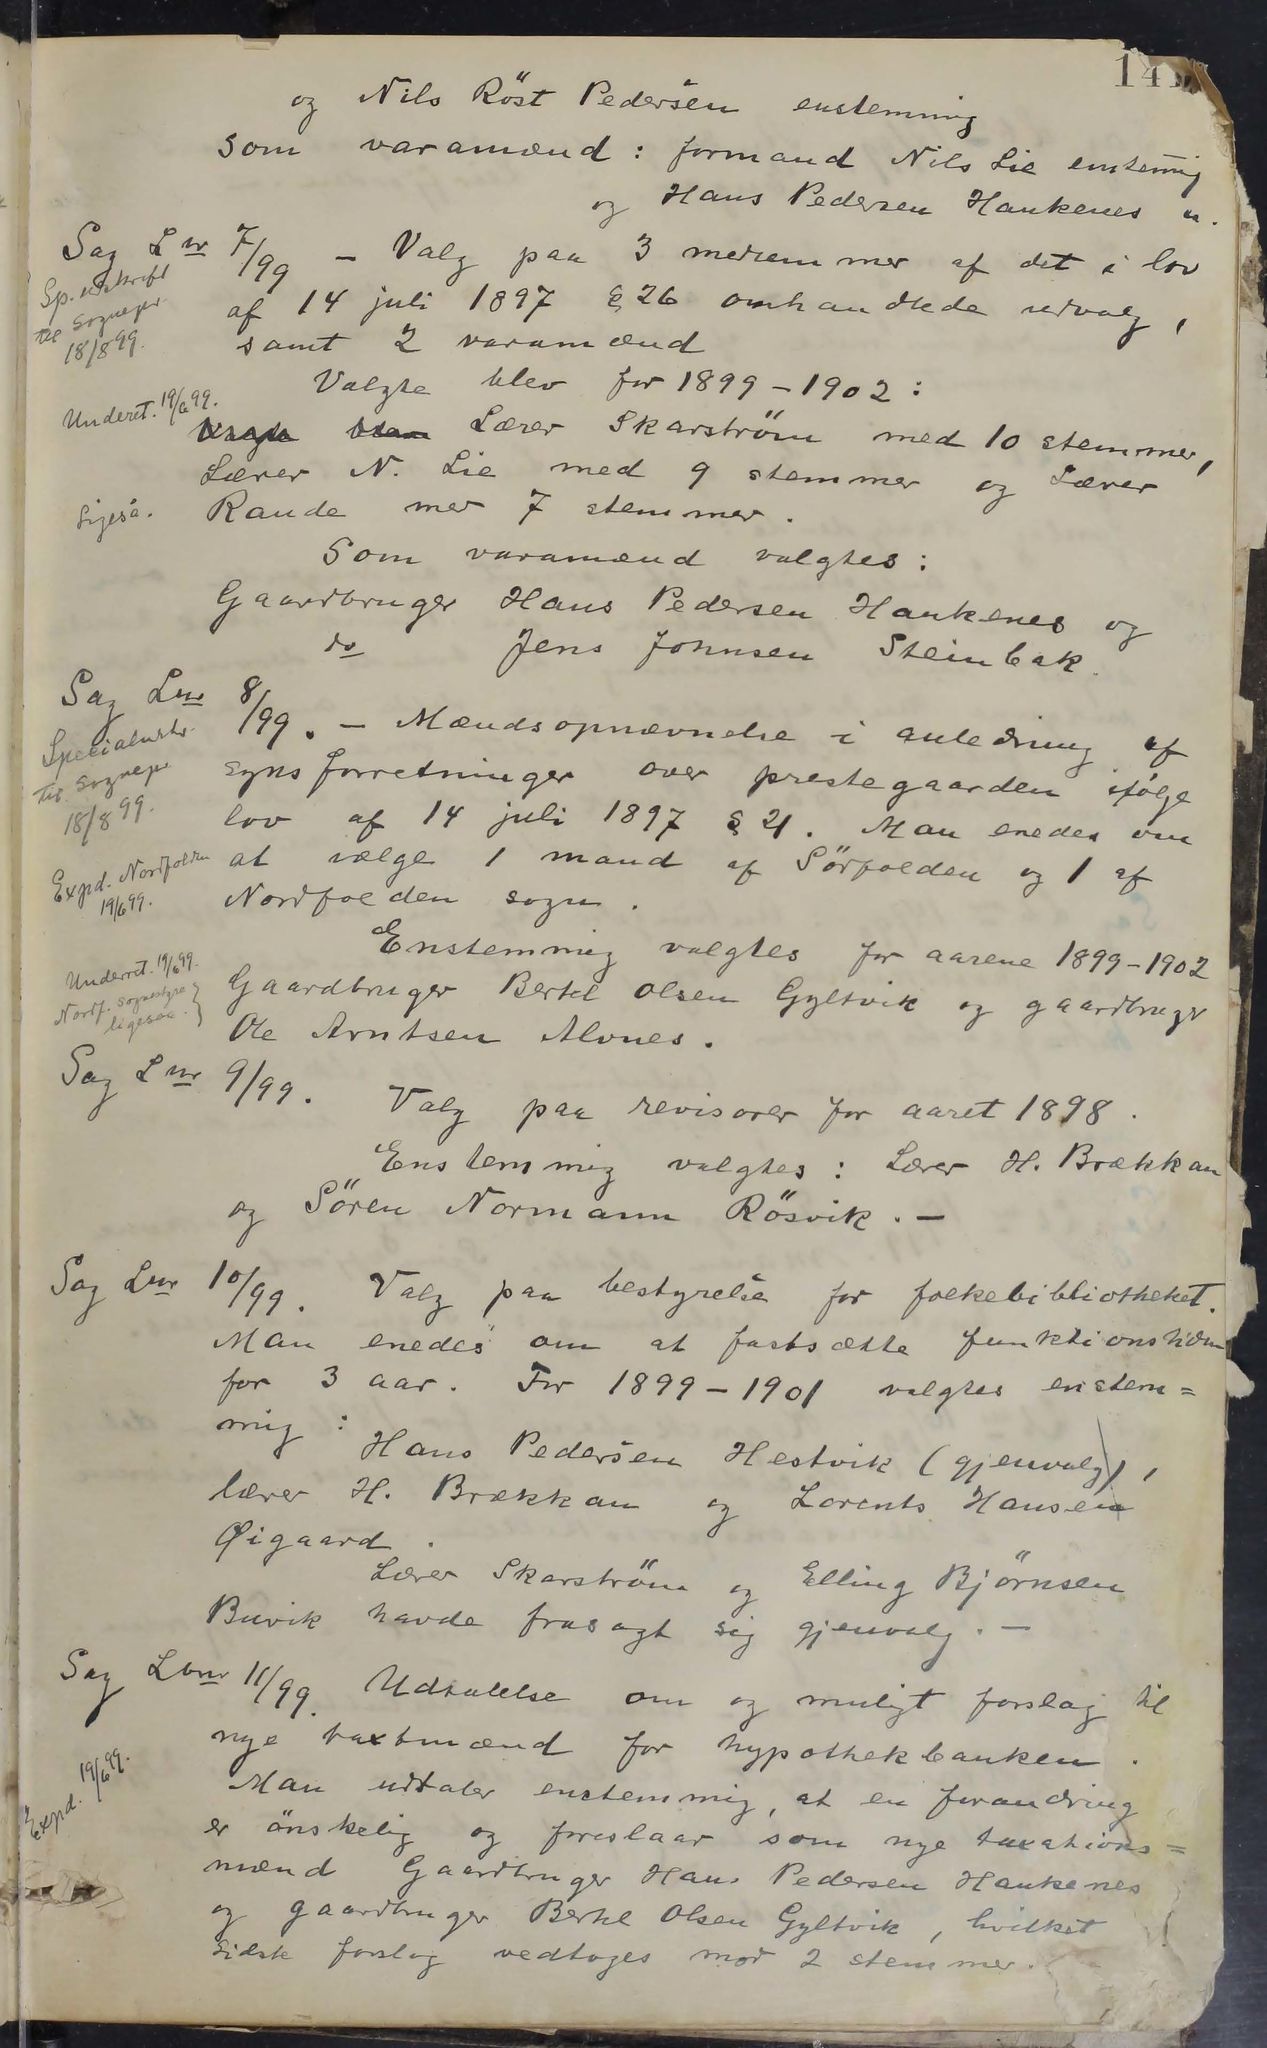 141
og Nils Röst Pedersen enstemmig
som varamænd: formand Nils Lie enstemmig
og Hans Pedersen Hankenes
Sag Lnr 7/99 – Valg paa 3 medlemmer af det i lov
af 14 juli 1897 § 26 omhandlede udvalg,
samt 2 varamænd
Sp. udskrift
til Sognepr.
18/8 99.
Valgte blev for 1899 – 1902:
Underet. 19/6 99.
Lærer Skarström med 10 stemmer,
Lærer N. Lie med 9 stemmer og Lærer
Rande med 7 stemmer.
Ligeså.
Som varamænd valgtes:
Gaardbruger Hans Pedersen Hankenes og
do Jens Johnsen Steinbak.
Sag Lnr 8/99. – Mændsopnævnelse i anledning af
synsforretninger over prestegaarden ifølge
lov af 14 juli 1897 § 21. Man enedes om
at vælge 1 mand af Sörfolden og 1 af
Nordfolden sogn.
Specialudskr.
til Sognepr
18/8 99.
Expd. Nordfolden
19/6 99.
Enstemmig valgtes for aarene 1899–1902
Gaardbruger Bertel Olsen Gyltvik og gaardbruger
Ole Arntsen Alvnes.
Underret. 19/6 99.
Nordf. Sognestyre
ligesaa.
Sag Lnr 9/99. Valg paa revisorer for aaret 1898.
Enstemmig valgtes: Lærer H. Brækkan
og Sören Normann Rösvik. –
Sag Lnr 10/99. Valg paa bestyrelse for folkebibliotheket.
Man enedes om at fastsætte funktionstiden
for 3 aar. For 1899–1901 valgtes enstem=
mig:
Hans Pedersen Hestvik (gjenvalg),
lærer H. Brækkan og Lorents Hansen
Øigaard.
Lærer Skarström og Elling Björnsen
Buvik havde frasagt sig gjenvalg. –
Sag Lbnr 11/99. Udtalelse om og muligt forslag til
nye taxtmænd for hypothekbanken.
Man udtaler enstemmig, at en forandring
er önskelig og foreslaar som nye taxations=
mænd Gaardbruger Hans Pedersen Hankenes
og gaardbruger Bertel Olsen Gyltvik, hvilket
sidste forslag vedtoges mod 2 stemmer.
Expd. 19/6 99.